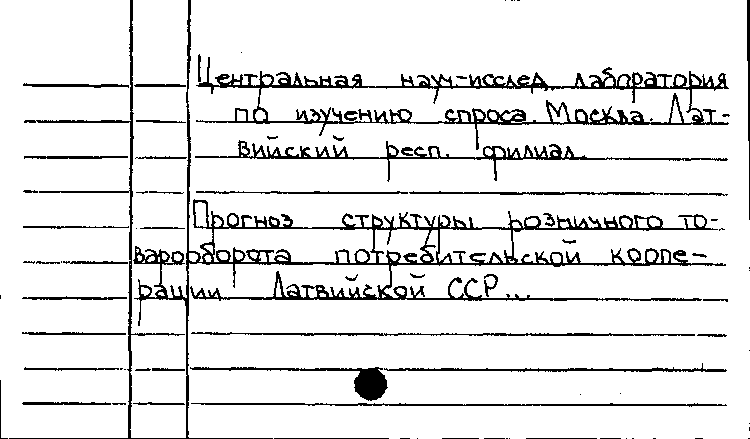 Центральная науч-исслед. лаборатория
по изучению спроса. Москва. Лат-
вийский респ. филиал.
Прогноз структуры розничного то-
варооборота потребительской коопе-
рации Латвийской ССР...